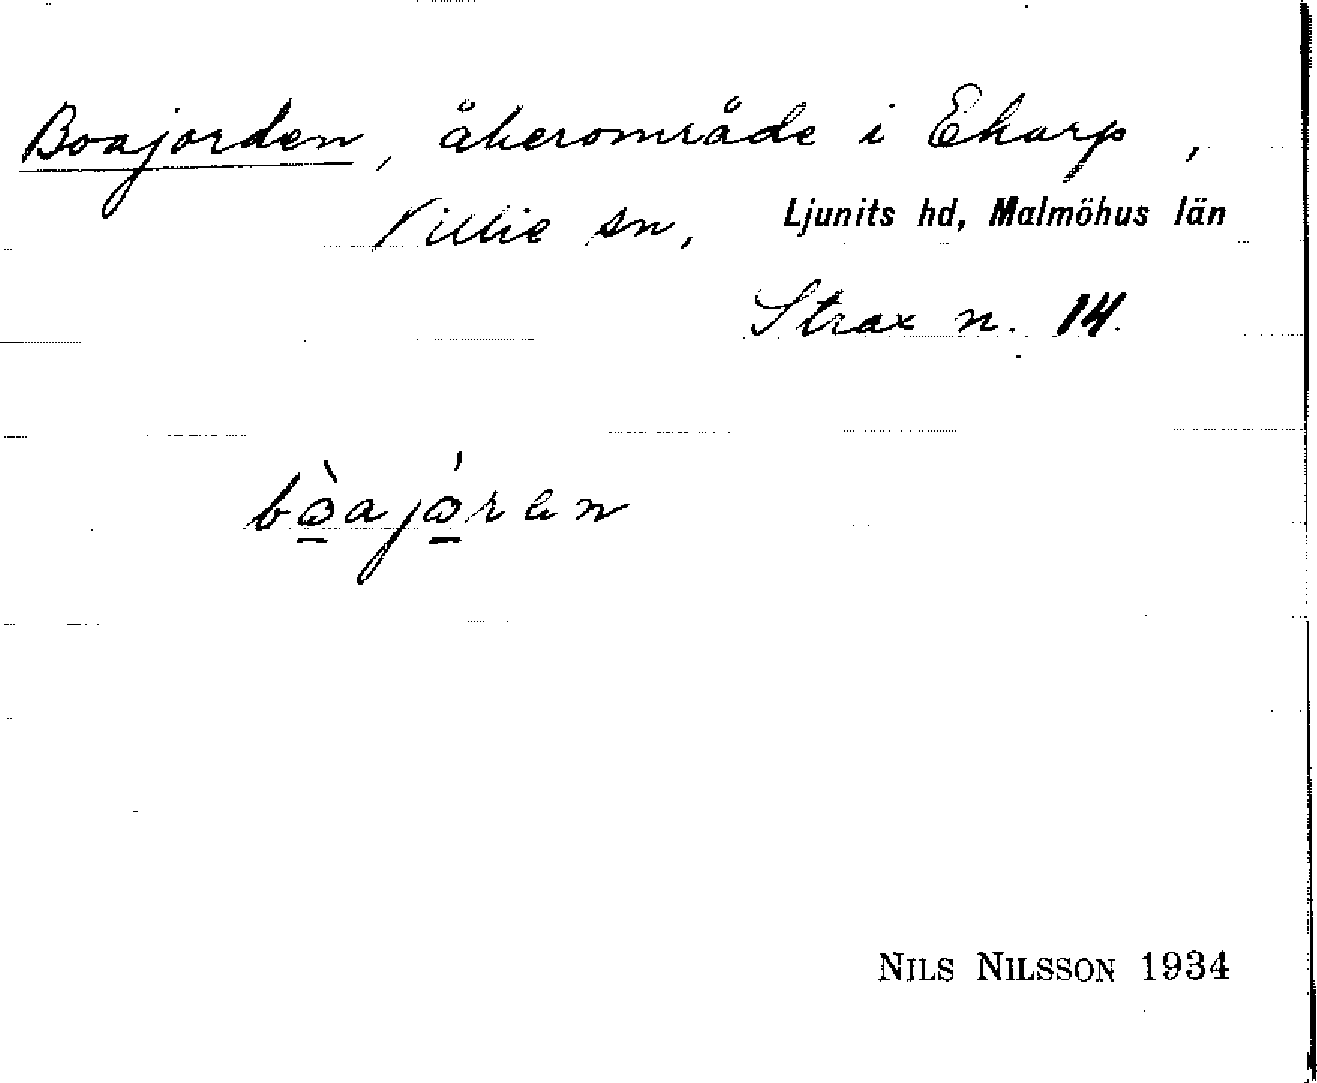 Boajorden, åkerområde i Ekarp,
Villie sn, Ljunits hd, Malmöhus län
Strax n. 14.
bò̱ajó̱ren
NILS NILSSON 1934